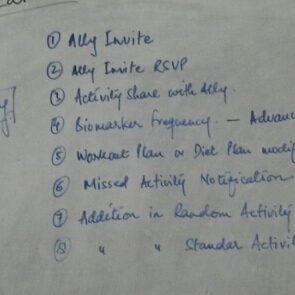 ① Ally Invite
② Ally Invite RSVP
③ Activity Share with Ally.
④ Biomarker Frequency. — Advanc
⑤ Workout Plan or Diet Plan modif
⑥ Missed Activity Notification.
⑦ Addition in Random Activity
⑧ " " Standar Activi